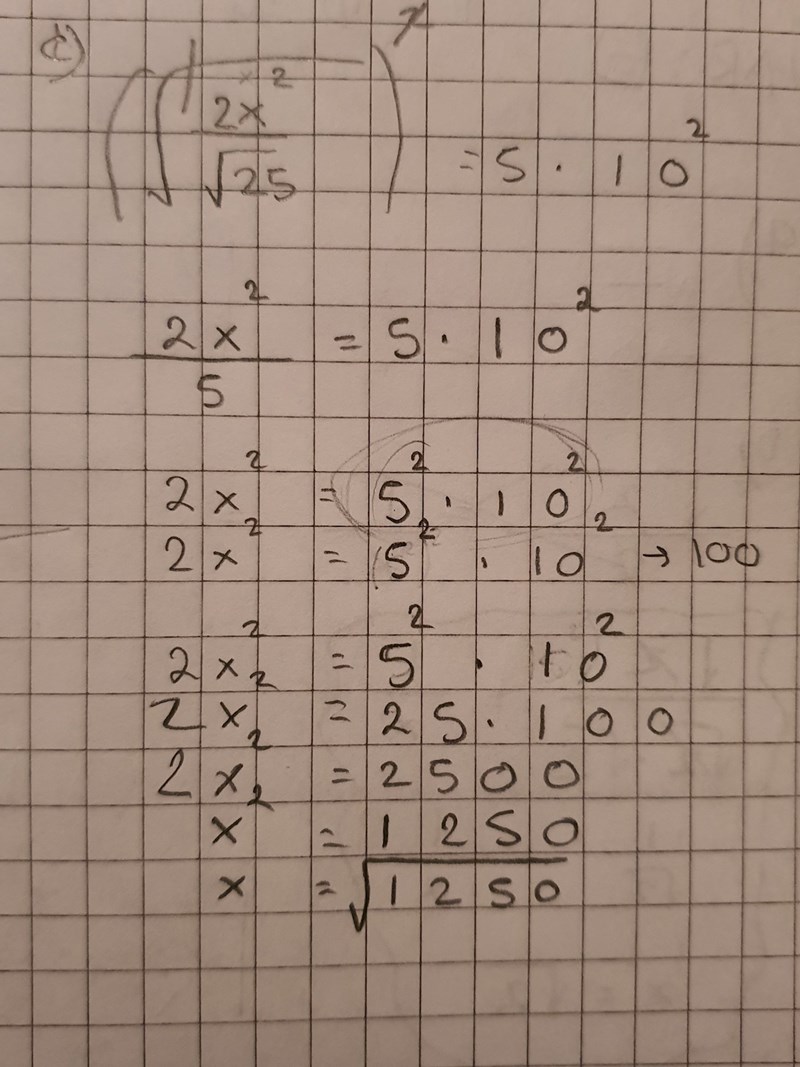 c) (√(2x²/√25))² = 5 · 10²
2x²/5 = 5 · 10²
2x² = 5² · 10²
2x² = 5² · 10² → 100
2x² = 5² · 10²
2x² = 25 · 100
2x² = 2500
x² = 1250
x = √1250